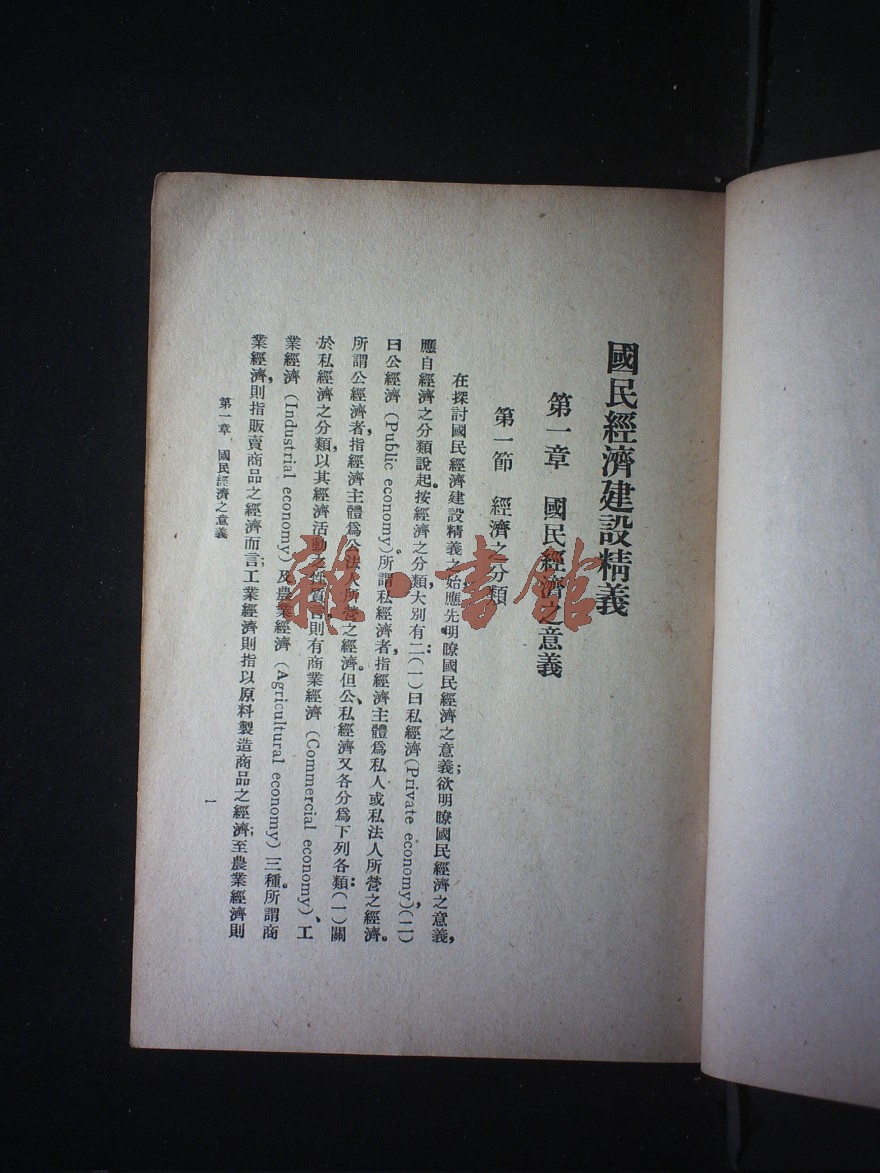 國民經濟建設精義
第一章 國民經濟之意義
第一節 經濟之分類
在探討國民經濟建設精義之始,應先明瞭國民經濟之意義;欲明瞭國民經濟之意義,
應自經濟之分類說起。按經濟之分類,大別有二:(一)曰私經濟(Private economy),(二)
曰公經濟(Public economy)。所謂私經濟者,指經濟主體爲私人或私法人所營之經濟。
所謂公經濟者,指經濟主體爲公法人所營之經濟。但公、私經濟又各分爲下列各類:(一)關
於私經濟之分類,以其經濟活動之性質言,則有商業經濟(Commercial economy)、工
業經濟(Industrial economy)及農業經濟(Agricultural economy)三種。所謂商
業經濟,則指販賣商品之經濟而言;工業經濟則指以原料製造商品之經濟;至農業經濟則
第一章 國民經濟之意義
1
雜·書館